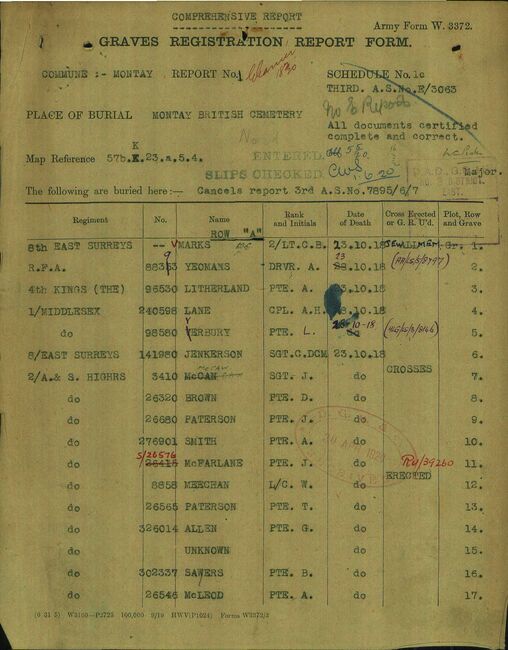 COMPREHENSIVE REPORT
Army Form W. 3372.
GRAVES REGISTRATION REPORT FORM.
COMMUNE :- MONTAY REPORT No.1 SCHEDULE No.1c
THIRD. A.S.No.E/3063
No E Report
PLACE OF BURIAL MONTAY BRITISH CEMETERY
All documents certified
complete and correct.
ENTERED
Map Reference 57b.K.23.a.5.4.
SLIPS CHECKED. CWS 6 20
Major.
The following are buried here:— Cancels report 3rd A.S.No.7895/6/7
Regiment No. Name Rank and Initials Date of Death Cross Erected or G. R. U'd. Plot, Row and Grave
ROW "A"
8th EAST SURREYS -- MARKS 2/LT.C.B. 23.10.18 Gr. 1.
R.F.A. YEOMANS DRVR. A. 23.10.18 2.
4th KINGS (THE) 96530 LITHERLAND PTE. A. 23.10.18 3.
1/MIDDLESEX 240598 LANE CPL. A.H. .10.18 4.
do 98580 YERBURY PTE. L. 10-18 5.
8/EAST SURREYS 141980 JENKERSON SGT.C.DCM 23.10.18 6.
CROSSES
2/A.& S. HIGHRS 3410 McCAN SGT. J. do 7.
do 26320 BROWN PTE. D. do 8.
do 26680 PATERSON PTE. J. do 9.
do 276901 SMITH PTE. A. do 10.
S/26576
do 26415 McFARLANE PTE. J. do RU/39260 11.
ERECTED
do 8858 MEECHAN L/C. W. do 12.
do 26565 PATERSON PTE. T. do 13.
do 326014 ALLEN PTE. G. do 14.
do UNKNOWN do 15.
do 302337 SAWERS PTE. B. do 16.
do 26546 McLEOD PTE. A. do 17.
(6 31 5) W3160—P2725 100,000 9/19 HWV(P1024) Forms W3372/2